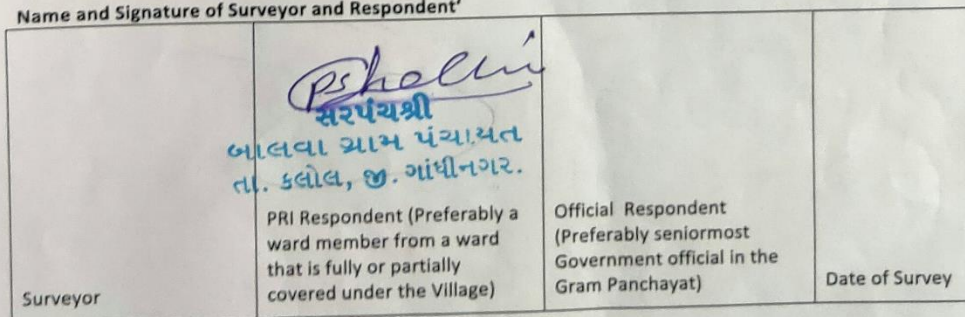 Name and Signature of Surveyor and Respondent'
સરપંચશ્રી
બાલવા ગ્રામ પંચાયત
તા. કલોલ, જી. ગાંધીનગર.
Surveyor
PRI Respondent (Preferably a
ward member from a ward
that is fully or partially
covered under the Village)
Official Respondent
(Preferably seniormost
Government official in the
Gram Panchayat)
Date of Survey